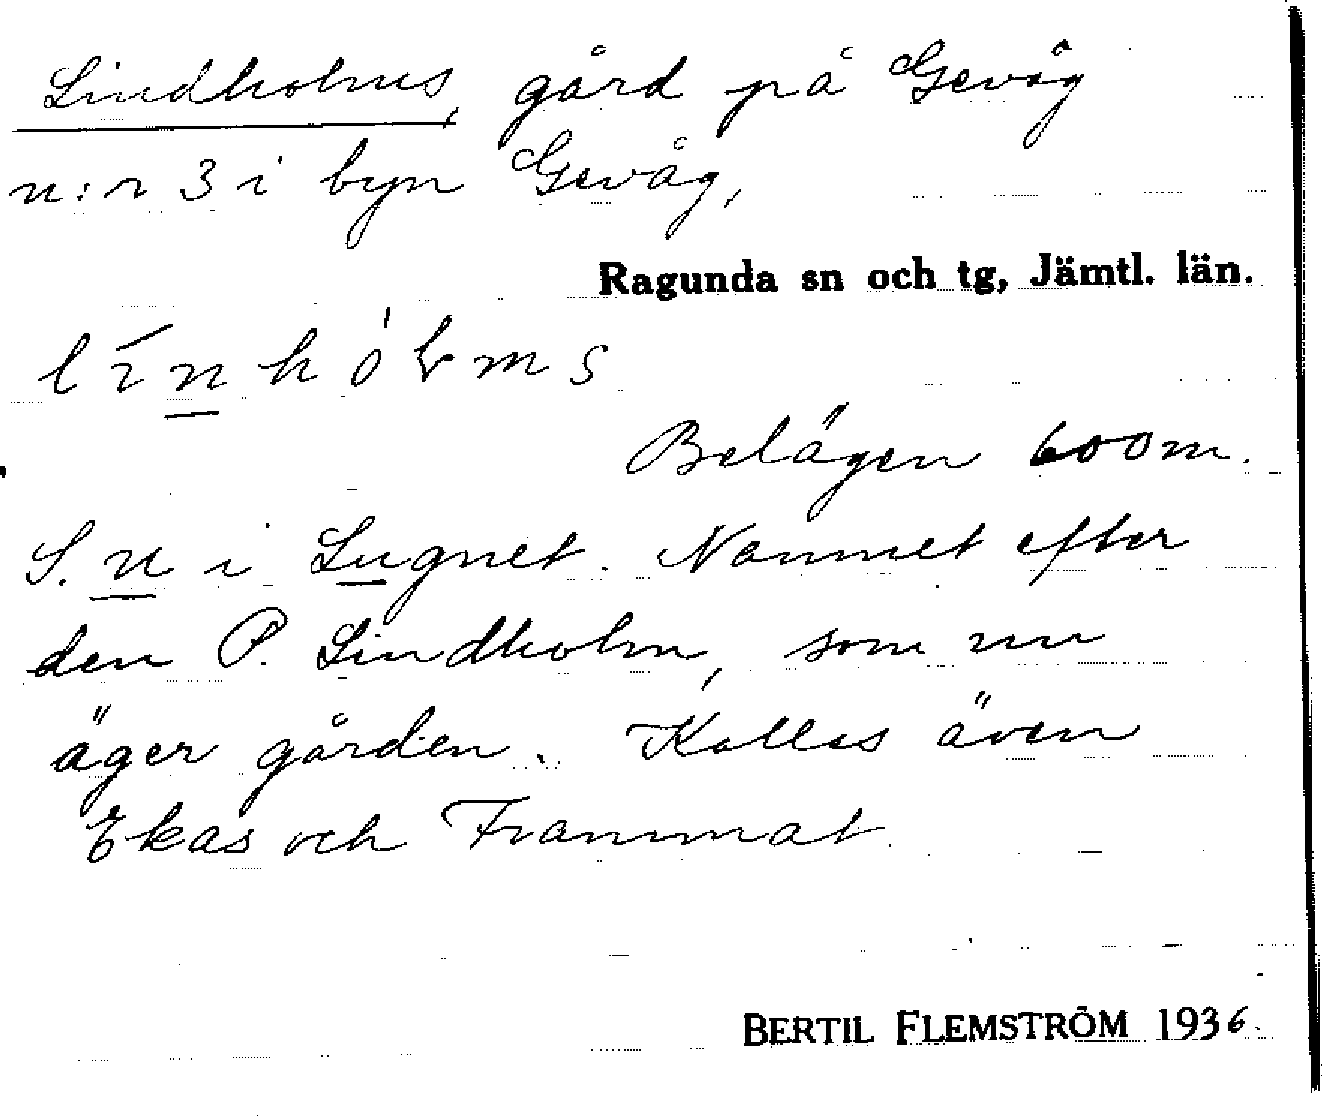 Lindholms, gård på Gevåg
n:r 3 i byn Gevåg,
Ragunda sn och tg, Jämtl. län.
línhólms
Belägen 600 m.
S. u i Lugnet. Namnet efter
den P. Lindholm, som nu
äger gården. Kallas även
Ekas och Frammat.
BERTIL FLEMSTRÖM 1936.